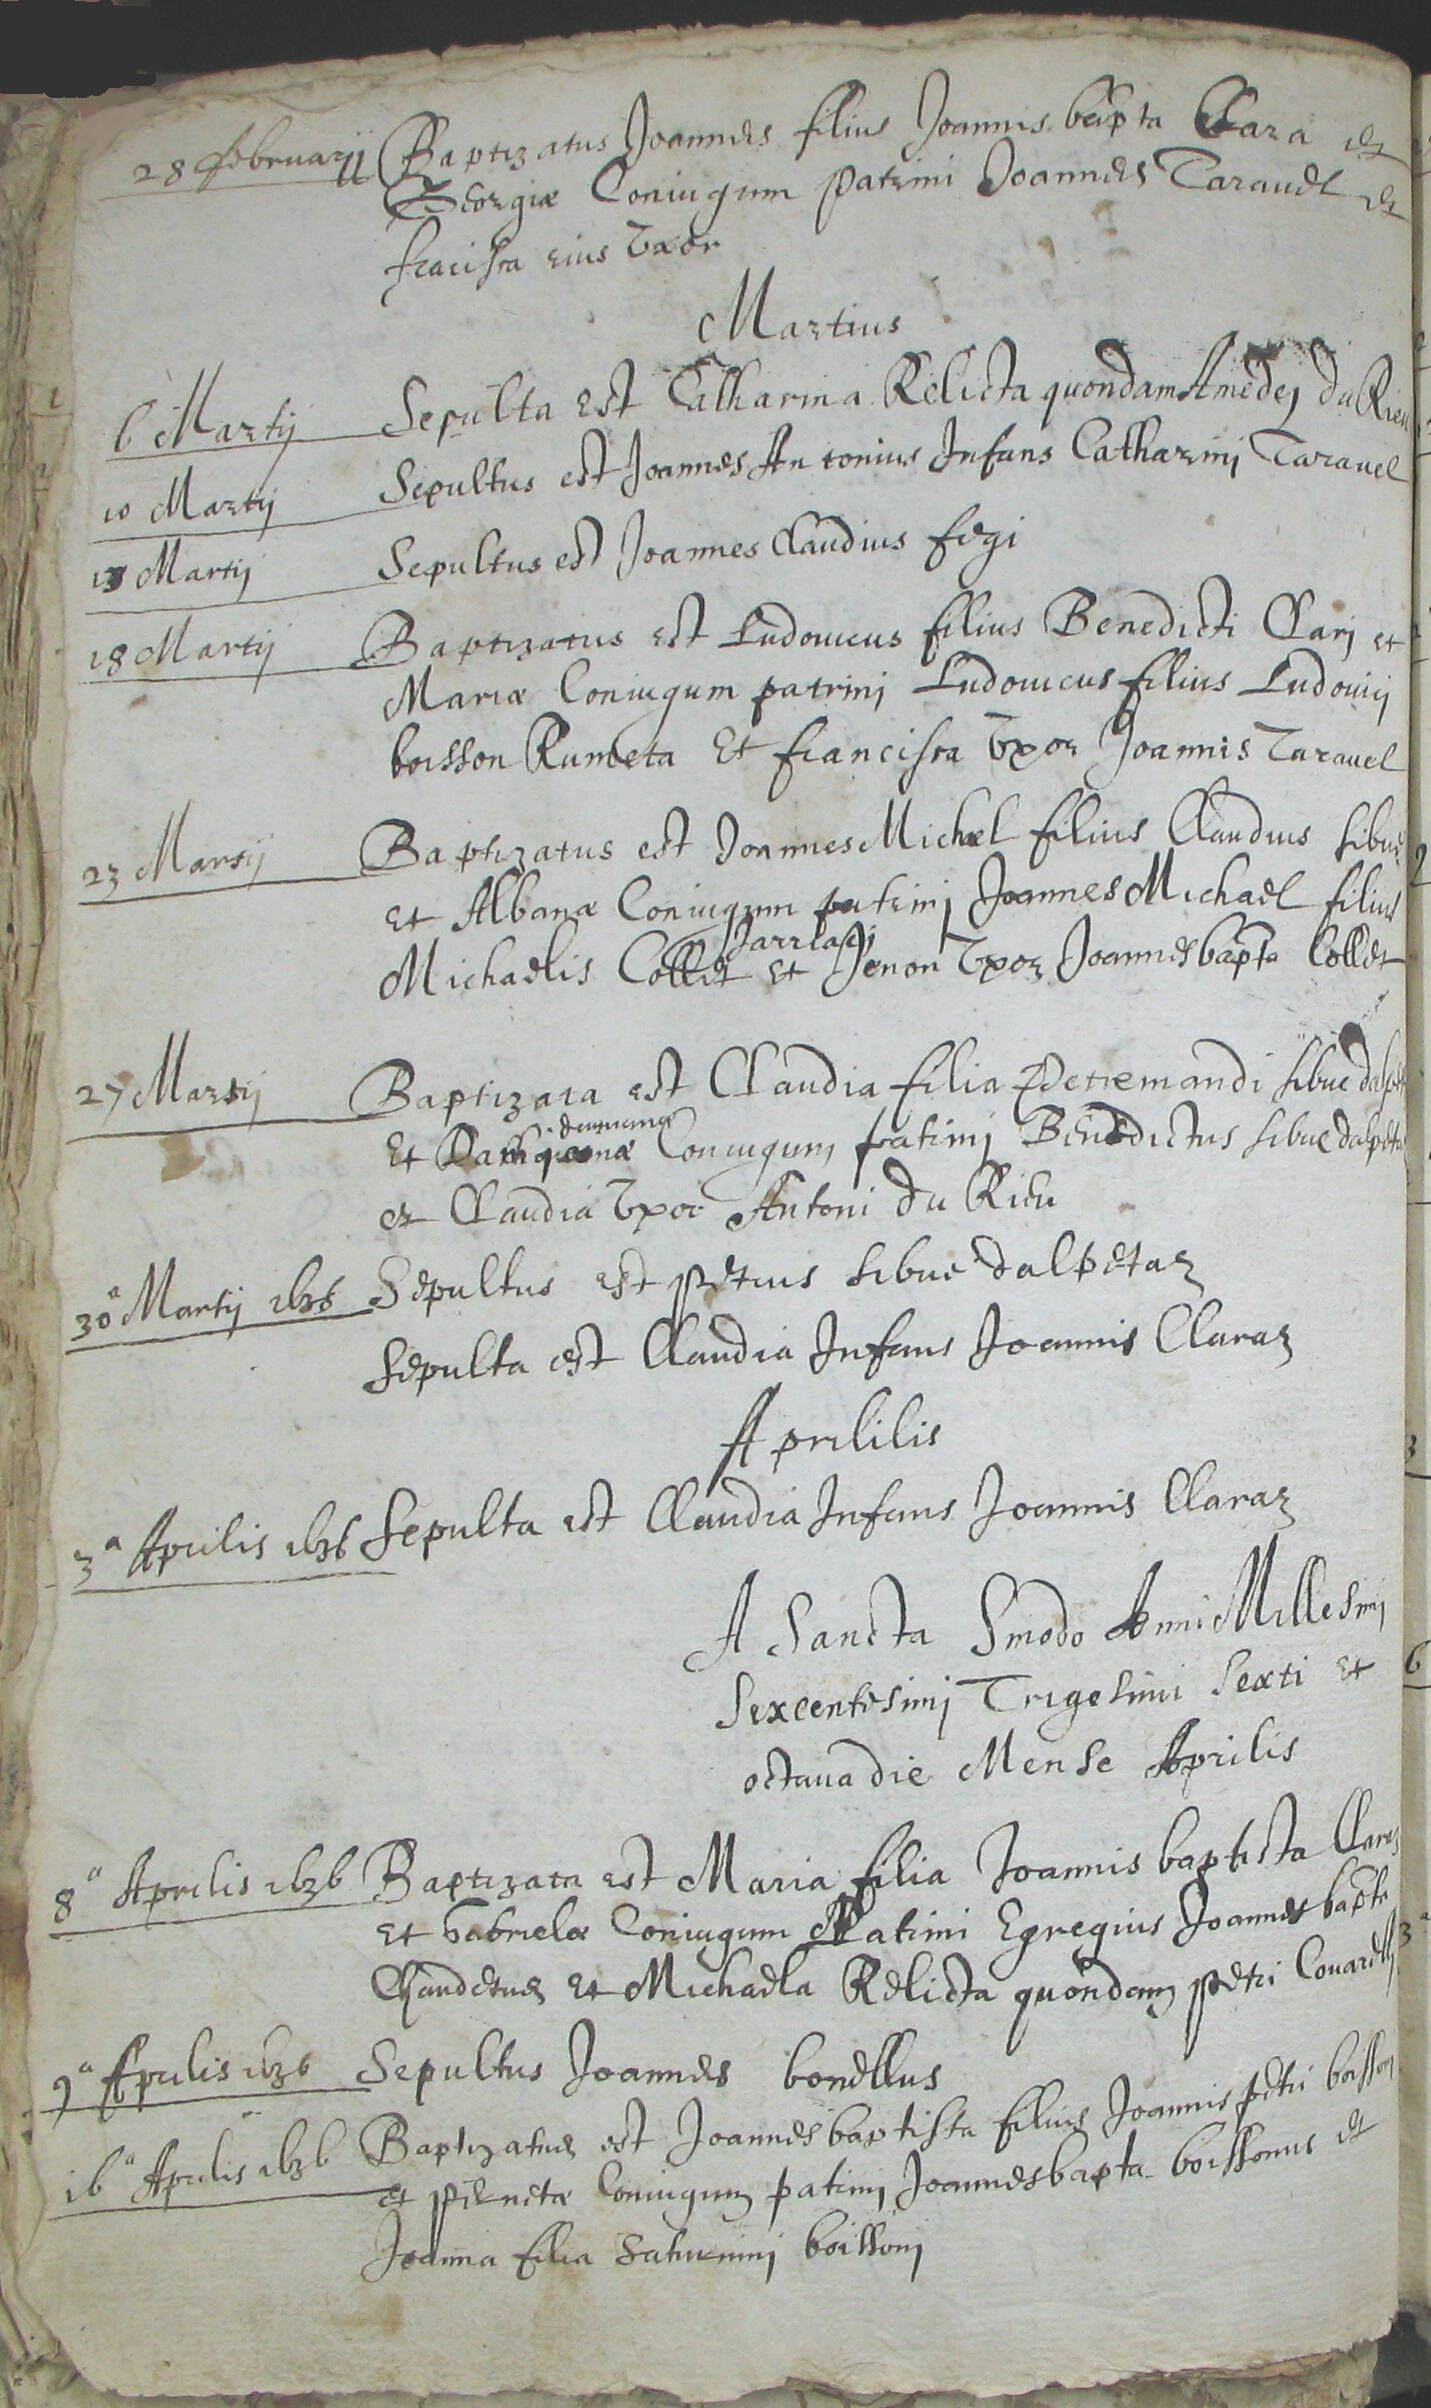 28 februarij Baptizatus Joannes filius Joannis bapta Clara et
Georgiæ Coniugum patrini Joannes Tarauel et
francisca eius Vxor
Martius
6 Martij Sepulta est Catharina Relicta quondam Amedej du Rieu
10 Martij Sepultus est Joannes Antonius Infans Catharinj Tarauel
13 Martij Sepultus est Joannes Claudius
18 Martij Baptizatus est Ludouicus filius Benedicti Clarj et
Mariæ Coniugum patrinj Ludouicus filius Ludouicj
boisson Rumeta Et francisca Vxor Joannis Tarauel
23 Martij Baptizatus est Joannes Michæl filius Claudius sibue
et Albanæ Coniugum patrinj Joannes Michael filius
Michaelis Collet et Jenon Vxor Joannes bapta Collet
27 Martij Baptizata est Claudia filia Petremandi sibue
Et Coniugum patrinj Benedictus sibue
et Claudia Vxor Antoni du Rieu
30a Martij 1636 Sepultus est petrus sibue dalpetaz
Sepulta est Claudia Infans Joannis Claraz
Aprililis
3a Aprilis 1636 Sepulta est Claudia Infans Joannis Claraz
A Sancta Sinodo Anni Millesimj
Sexcentesimj Trigesimi Sexti et
octaua die Mense Aprilis
8a Aprilis 1636 Baptizata est Maria filia Joannis baptista Claraz
et Gabrielæ Coniugum Patrini Egregius Joannes bapta
et Michaela Relicta quondam petri
9a Aprilis 1636 Sepultus Joannes bonellus
16a Aprilis 1636 Baptizatus est Joannes baptista filius Joannis petri boisson
et pernetæ Coniugum patrinj Joannes bapta boissonus et
Joanna filia Saturninj boissonj